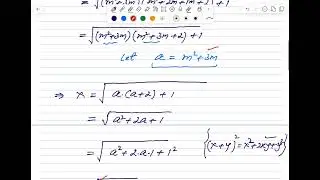 = √(m²+3m)(m²+3m+2) + 1
let a = m²+3m
⇒ x = √a·(a+2) + 1
= √a²+2a+1
= √a²+2·a·1+1²
{(x+y)²=x²+2xy+y²}